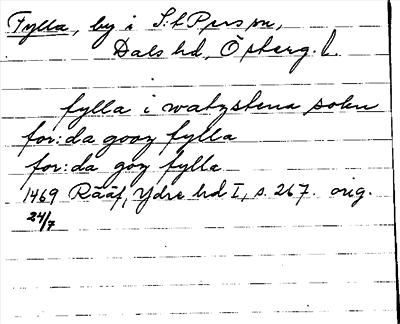 Fylla, by i S:t Pers sn,
Dals hd, Österg. l.
fylla i watzstena sokn
for:da gooz fylla
for:da goz fylla
1469 Rääf, Ydre hd I, s. 267. orig.
24/7